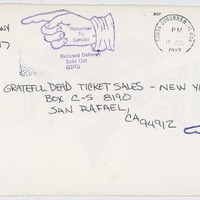 NY
Returned
To
Sender
Refused Delivery
Sold Out
GDTS
SOUTH SUBURBAN, IL
PM
GRATEFUL DEAD TICKET SALES - NEW Y
BOX C-S 8190
SAN RAFAEL,
CA 94912